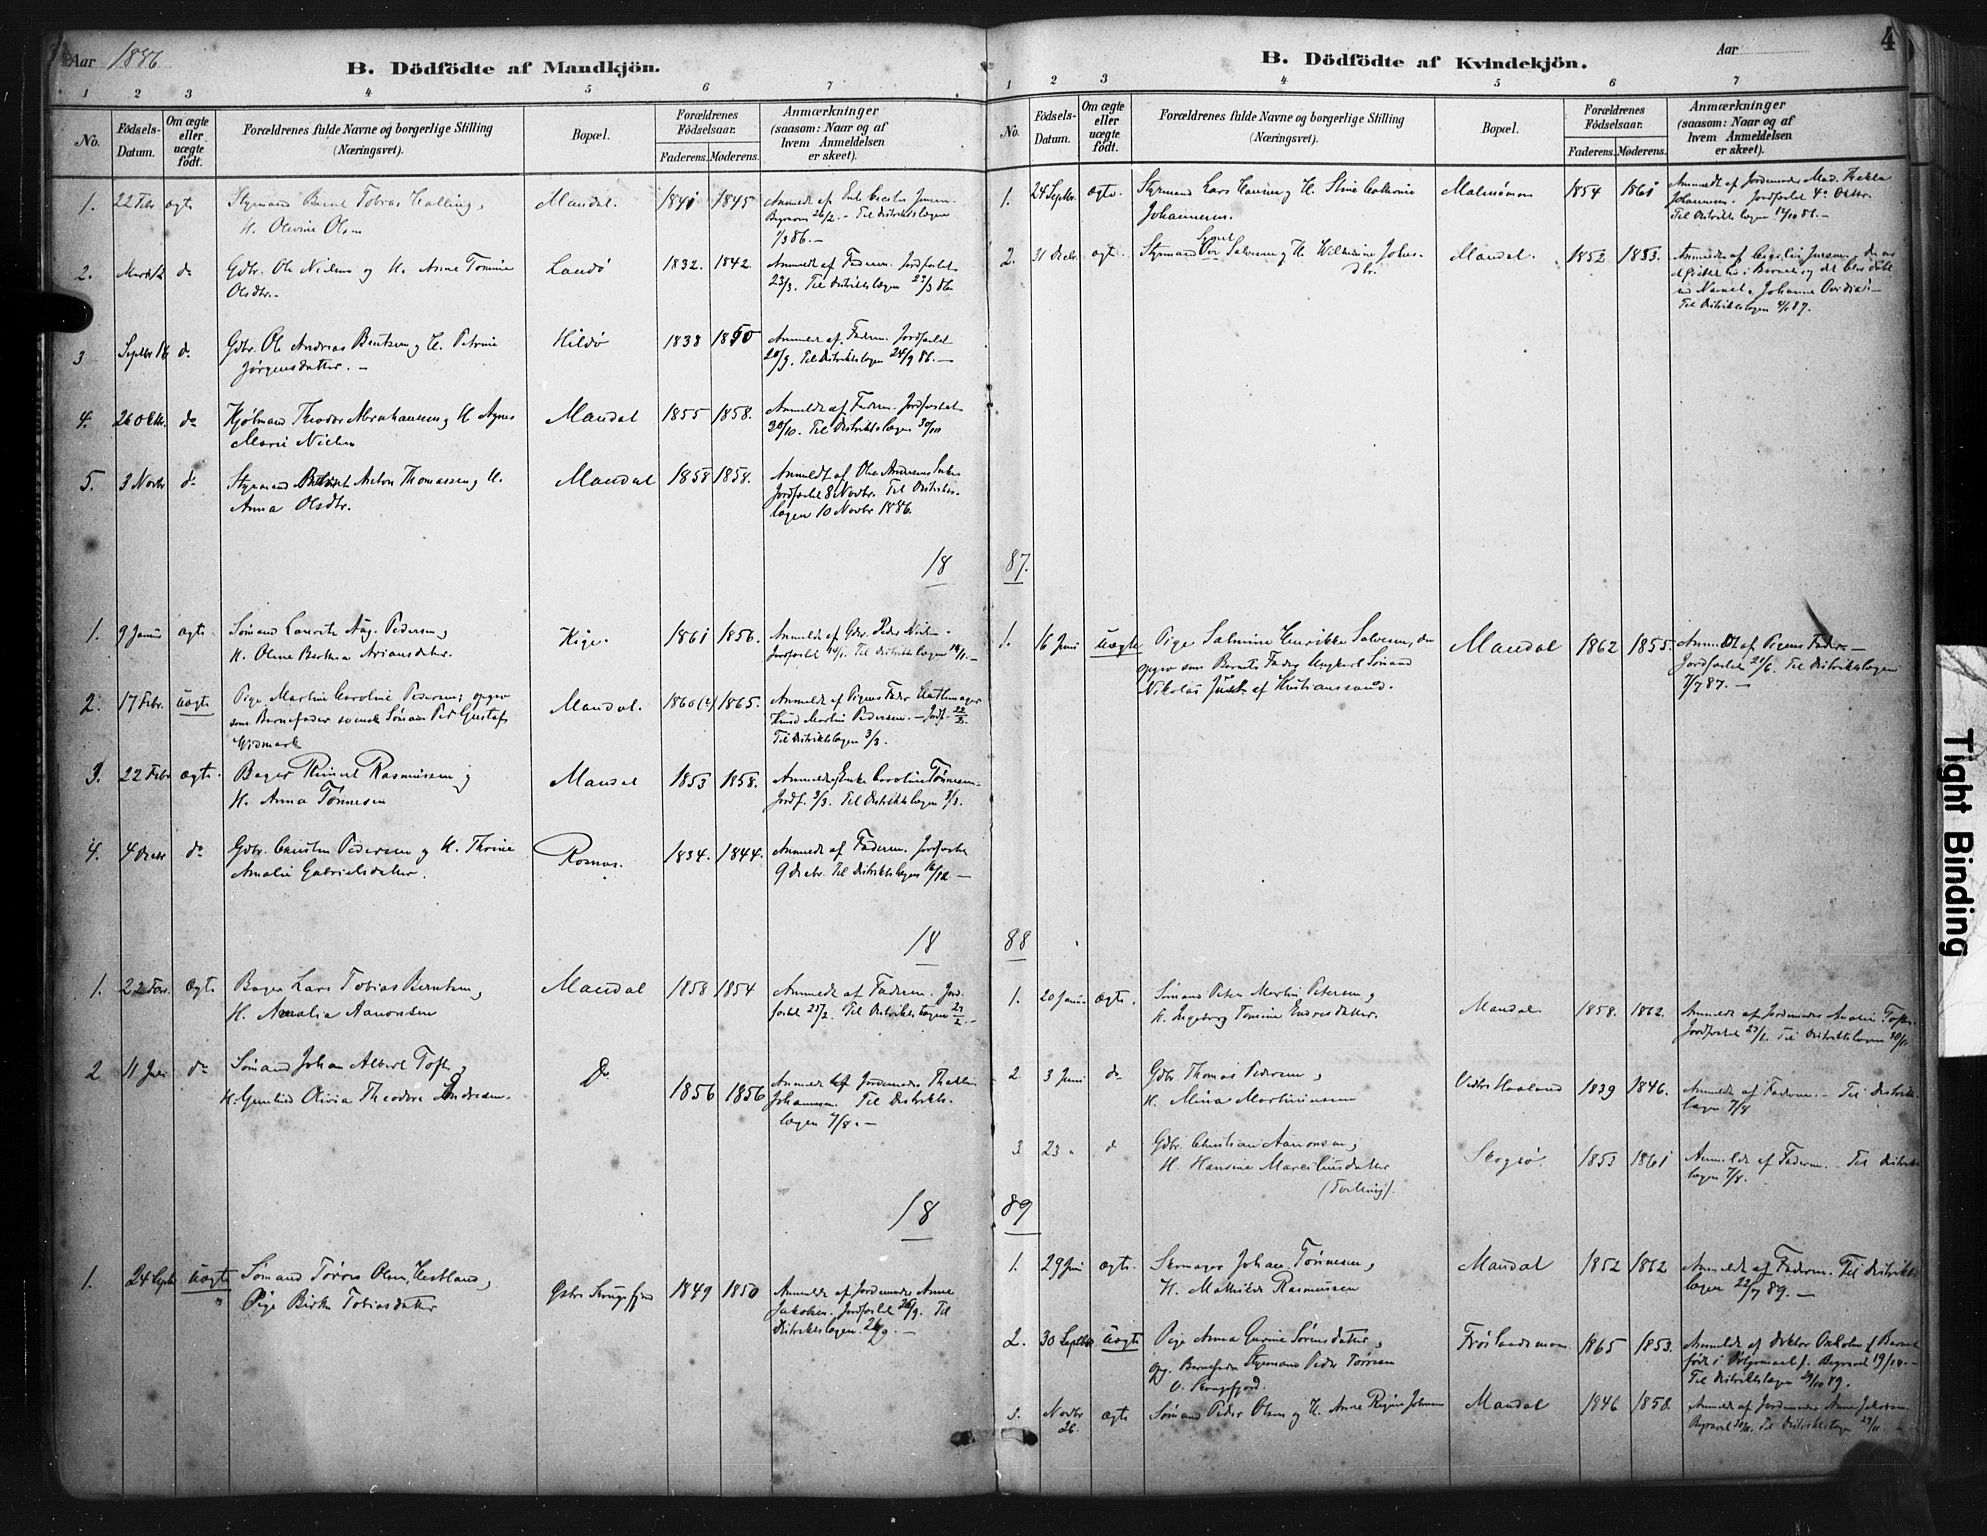 Aar 1886
B. Dödfödte af Mandkjön.
1 2 3 4 5 6 7
No.
Födsels-
Datum.
Om ægte
eller
uægte
födt.
Forældrenes fulde Navne og borgerlige Stilling
(Næringsvei).
Bopæl.
Forældrenes
Födselsaar.
Faderens. Moderens.
Anmærkninger
(saasom: Naar og af
hvem Anmeldelsen
er skeet).
1. 22 Febr ægte Styrmand Bernt Tobias Halling, Mandal. 1841 1845
H. Olevine Olsen
Til Distriktslægen
1/3 86. —
2. do Gdbr. Ole Nielsen og H. Anne Tomine Landö 1832. 1842. Anmeldt af Faderen. Jordfæstet
Olsdtr. 23/3. Til Distriktslægen 23/3 86
3 Septbr 16 do Gdbr. Ole Andreas Bentsen og H. Petrine Hildö 1838 1850 Anmeldt af Faderen. Jordfæstet
Jörgensdatter. — Til Distriktslægen 24/9 86. —
4. 26 Oktr. do Theodor Abrahamsen og H. Agnes Mandal 1855 1858. Anmeldt af Faderen. Jordfæstet
Marie Nielsen 30/10. Til Distriktslægen 30/10
5. 3 Novbr do Styrmand Anton Thomassen og H. Mandal 1858 1858. Anmeldt af
Anna Olsdtr. Jordfæstet 8 Novbr. Til Distrikts-
lægen 10 Novbr 1886.
18
1. 9 Januar ægte Sömand Lauritz Aug. Pedersen, Kige. 1861 1856. Anmeldt af Gdbr. Peder
H. Oline Bertha Ariansdatter. Jordfæstet 14/1. Til Distriktslægen 14/1. —
2. 17 Febr. uægte Pige Martine Caroline Pedersen; opgiver Mandal. 1860(?) 1865. Anmeldt af Pigens Fader
som Barnefader svensk Sömand Per Gustaf Martin Pedersen. — Jordf. 22/2.
Widmark Til Distriktslægen 3/3.
3. 22 Febr ægte. Bager Reinert Rasmussen og Mandal 1853 1858. Anmeldt af Enke Caroline Tönnesen
H. Anna Tönnesen Jordf. 3/3. Til Distriktslægen 3/3.
4. 4 Decbr do Gdbr. Christen Pedersen og H. Thrine 1834. 1844. Anmeldt af Faderen. Jordfæstet
Amalie Gabrielsdatter. 9 Decbr. Til Distriktslægen 16/12. —
18
1. 22 ægte Bager Lars Tobias Berntsen, Mandal 1858 1854 Anmeldt af Faderen. Jord-
H. Amalia Aanonsen fæstet 25/2. Til Distriktslægen 27/2. —
2 11 do Sömand Johan Albert Tofte, Do 1856 1856 Anmeldt af Jordemoder Thekla
H. Olivia Theodora Andreasen. Johannesen. Til Distrikts-
lægen 7/8. —
18
1. 24 Septbr uægte Sömand Törres Olsen Hestland, 1849 1850 Anmeldt af Jordemoder Anne
Pige Birthe Tobiasdatter Jakobsen. Jordfæstet 26/9. Til
Distriktslægen 26/9. —
Aar 4
B. Dödfödte af Kvindekjön.
1 2 3 4 5 6 7
No.
Födsels-
Datum.
Om ægte
eller
uægte
födt.
Forældrenes fulde Navne og borgerlige Stilling
(Næringsvei).
Bopæl.
Forældrenes
Födselsaar.
Faderens. Moderens.
Anmærkninger
(saasom: Naar og af
hvem Anmeldelsen
er skeet).
1. 24 Septbr. ægte. Styrmand Lars Hansen og H. Stine Cathrine Malmömoen 1854 1861 Anmeldt af Jordemoder Mad. Thekla
Johannesen. Johannesen. Jordfæstet 4de Oktbr.
Til Distriktslægen 12/10 86. —
2. 31 Decbr. ægte. Styrmand Ove Salvesen og H. Wilhelmine Mandal. 1852 1853.
i Barnet og det blev döbt
ved Navnet "Johanne Ovidia". —
Til Distriktslægen 4/1 87.
87.
1. 16 Juni uægte Pige Salmine Henrikke Salvesen, der Mandal 1862 1855. Anmeldt af Pigens Fader. —
opgiver som Barnets Fader Ungkarl Sömand Jordfæstet 21/6. Til Distriktslægen
Nikolas af Kristianssand. 7/7 87. —
88
1. 20 Januar ægte. Sömand Peter Martin Petersen og Mandal 1858. 1862. Anmeldt af Jordemoder Amalie Tofte.
H. Ingeborg Tomine Endresdatter. Jordfæstet 23/1. Til Distriktslægen
2 3 Juni do Gdbr. Thomas Pedersen, Vestre Haaland 1839 1846. Anmeldt af Faderen. — Til Distrikts-
H. Mina Martiniussen lægen 7/8
3 23 " do Gdbr. Christian Aanonsen, Skogsö. 1853 1861 Anmeldt af Faderen. — Til Distrikts-
H. Hansine Marceliusdatter lægen 7/8.
(Tvilling).
89
1. 29 Juni ægte. Skomager Johan Tönnesen, Mandal 1852 1862 Anmeldt af Faderen. Til Distrikts-
H. Mathilde Rasmussen lægen 22/7 89. —
2. 30 Septbr uægte Pige Anna Gurine Sörensdatter, Fröislandsmoen 1865 1853. Anmeldt af Doktor
opg. Barnefader Styrmand Peder Törresen Begravet 19/10. —
Ö. Skogsfjord. Til Distriktslægen 29/10 89.
3. Novbr ægte Sömand Peder Olsen og H. Anne Regine Johnsen Mandal 1846 1858. Anmeldt af Jordemoder Anne Jakobsen
26. Begravet 30/11. Til Distriktslægen 29/11
Tight Binding